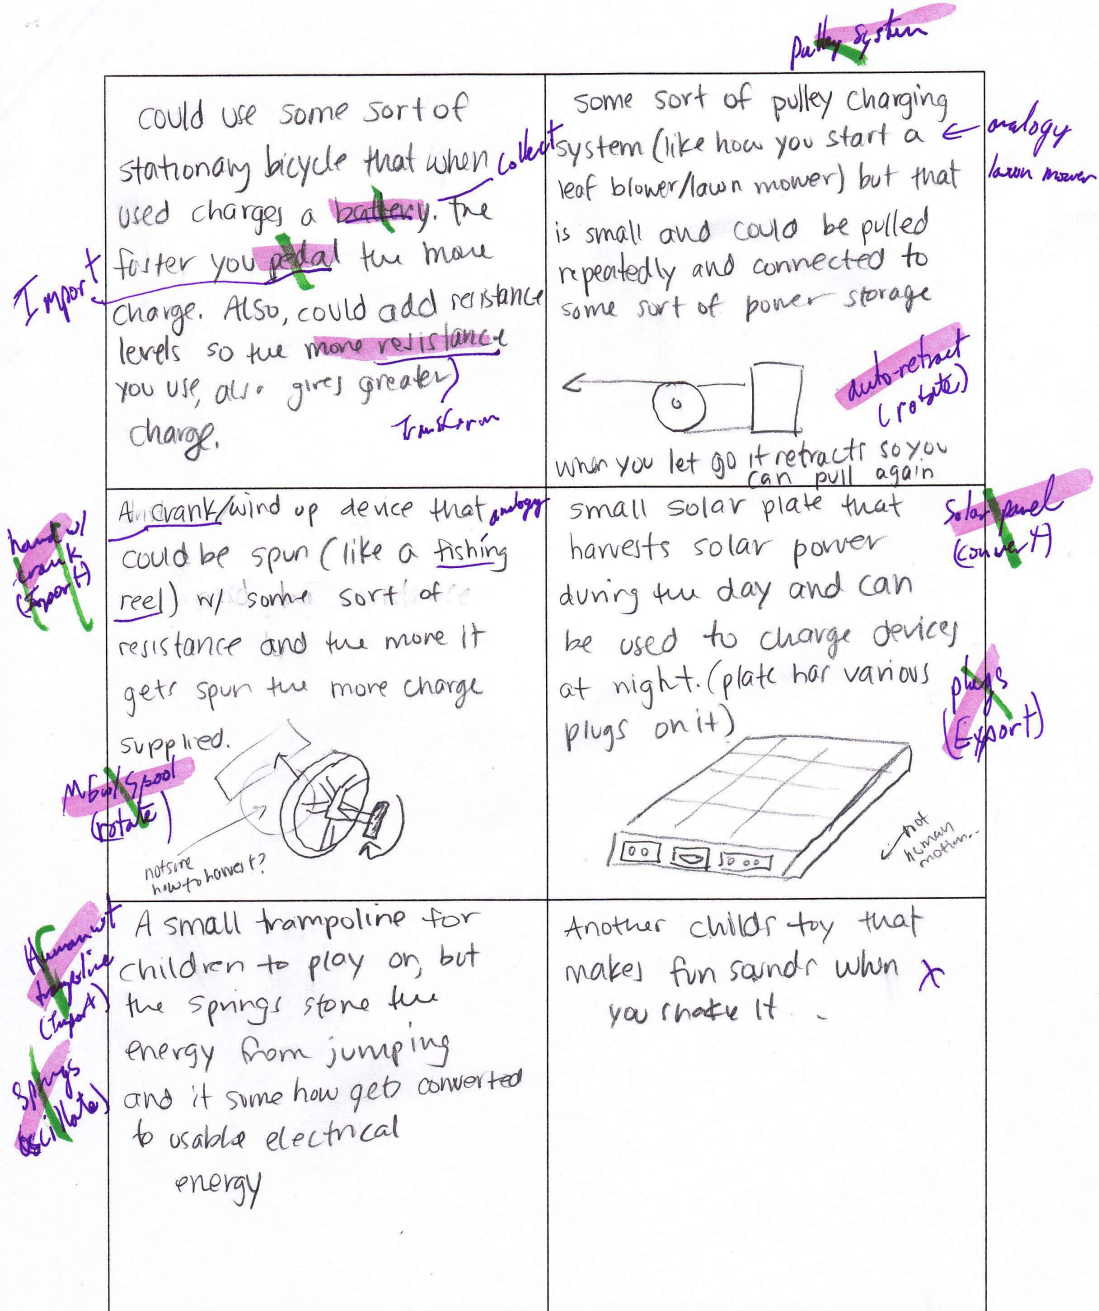 pulley system
could use some sort of
stationary bicycle that when
collect
used charges a battery. The
faster you pedal the more
Import
charge. Also, could add resistance
levels so the more resistance
you use, also gives greater
Transform
charge.
some sort of pulley charging
system (like how you start a
analogy
lawn mower
leaf blower/lawn mower) but that
is small and could be pulled
repeatedly and connected to
some sort of power storage
auto-retract
(rotate)
when you let go it retracts so you
can pull again
hand w/
crank
(Import)
A crank/wind up device that
analogy
could be spun (like a fishing
reel) w/ some sort of
resistance and the more it
gets spun the more charge
supplied.
spool
(rotate)
not sure
how to harvest?
small solar plate that
harvests solar power
during the day and can
be used to charge devices
at night. (plate has various
plugs on it)
Solar panel
(convert)
plugs
(Export)
not
human
motion...
Human wt
trampoline
(Import)
Springs
(oscillate)
A small trampoline for
children to play on, but
the springs store the
energy from jumping
and it some how gets converted
to usable electrical
energy
Another childs toy that
makes fun sounds when
X
you shake it ..